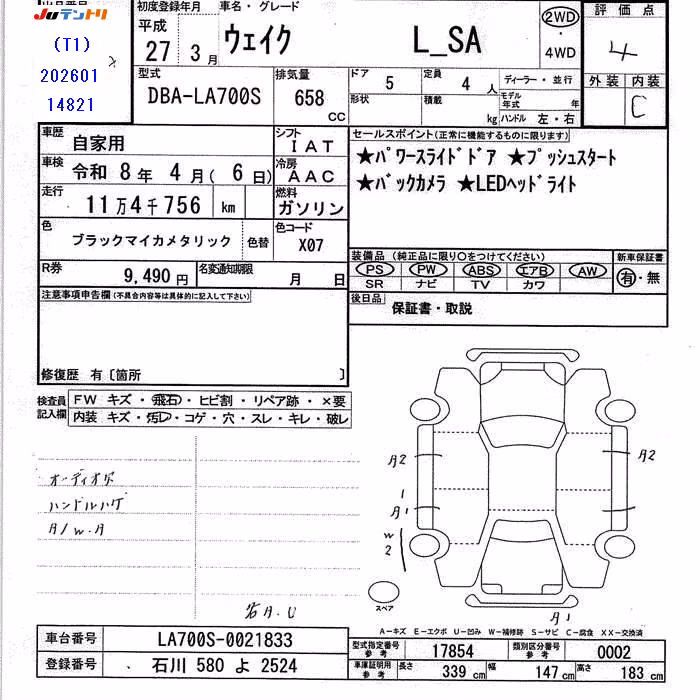 JUテントリ
(T1)
202601
14821
初度登録年月
平成
27 3 月
車名・グレード
ウェイク L_SA
2WD
・
4WD
評価点
4
外装 内装
C
型式
DBA-LA700S
排気量
658
CC
ドア
5
定員
4 人
ディーラー・並行
形状
積載
kg
モデル年式 年
ハンドル 左・右
車歴
自家用
シフト
IAT
車検
令和 8 年 4 月( 6 日)
冷房
AAC
走行
11 万 4 千 756 km
燃料
ガソリン
色
ブラックマイカメタリック
色替
色コード
X07
R券
9,490 円
名変通知期限
月 日
セールスポイント(正常に機能するものに限ります)
★パワースライドドア ★プッシュスタート
★バックカメラ ★LEDヘッドライト
装備品 (純正品に限り○をつけてください)
新車保証書
PS PW ABS エアB AW
SR ナビ TV カワ
有・無
後日品
保証書・取説
注意事項申告欄(不具合内容等は具体的に記入して下さい)
修復歴 有〔箇所 〕
検査員記入欄
FW キズ・飛石・ヒビ割・リペア跡・×要
内装 キズ・汚レ・コゲ・穴・スレ・キレ・破レ
オーディオ欠
ハンドルハゲ
A/W.A
A2
A2
1
A1
W
2
スペア
A1
A-キズ E-エクボ U-凹み W-補修跡 S-サビ C-腐食 XX-交換済
車台番号
LA700S-0021833
登録番号
石川 580 よ 2524
型式指定番号
参考
17854
類別区分番号
参考
0002
車庫証明用
参考
長さ
339 cm
幅
147 cm
高さ
183 cm